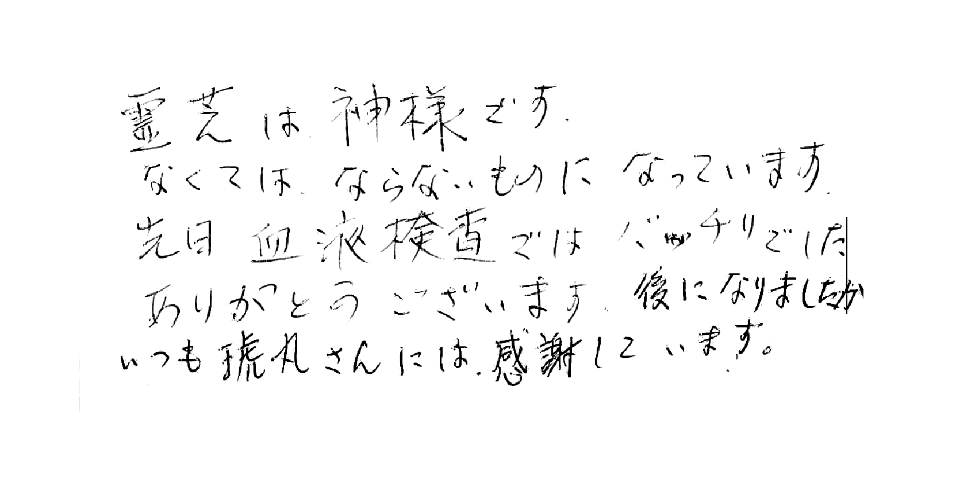 霊芝は神様です.
なくてはならないものになっています.
先日血液検査ではバッチリでした
ありがとうございます.後になりましたが
いつも琥丸さんには.感謝しています。